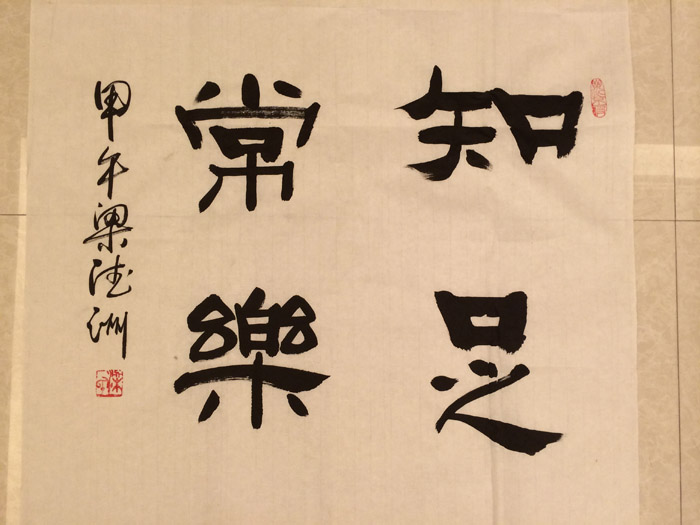 知足
常樂
甲午梁德洲